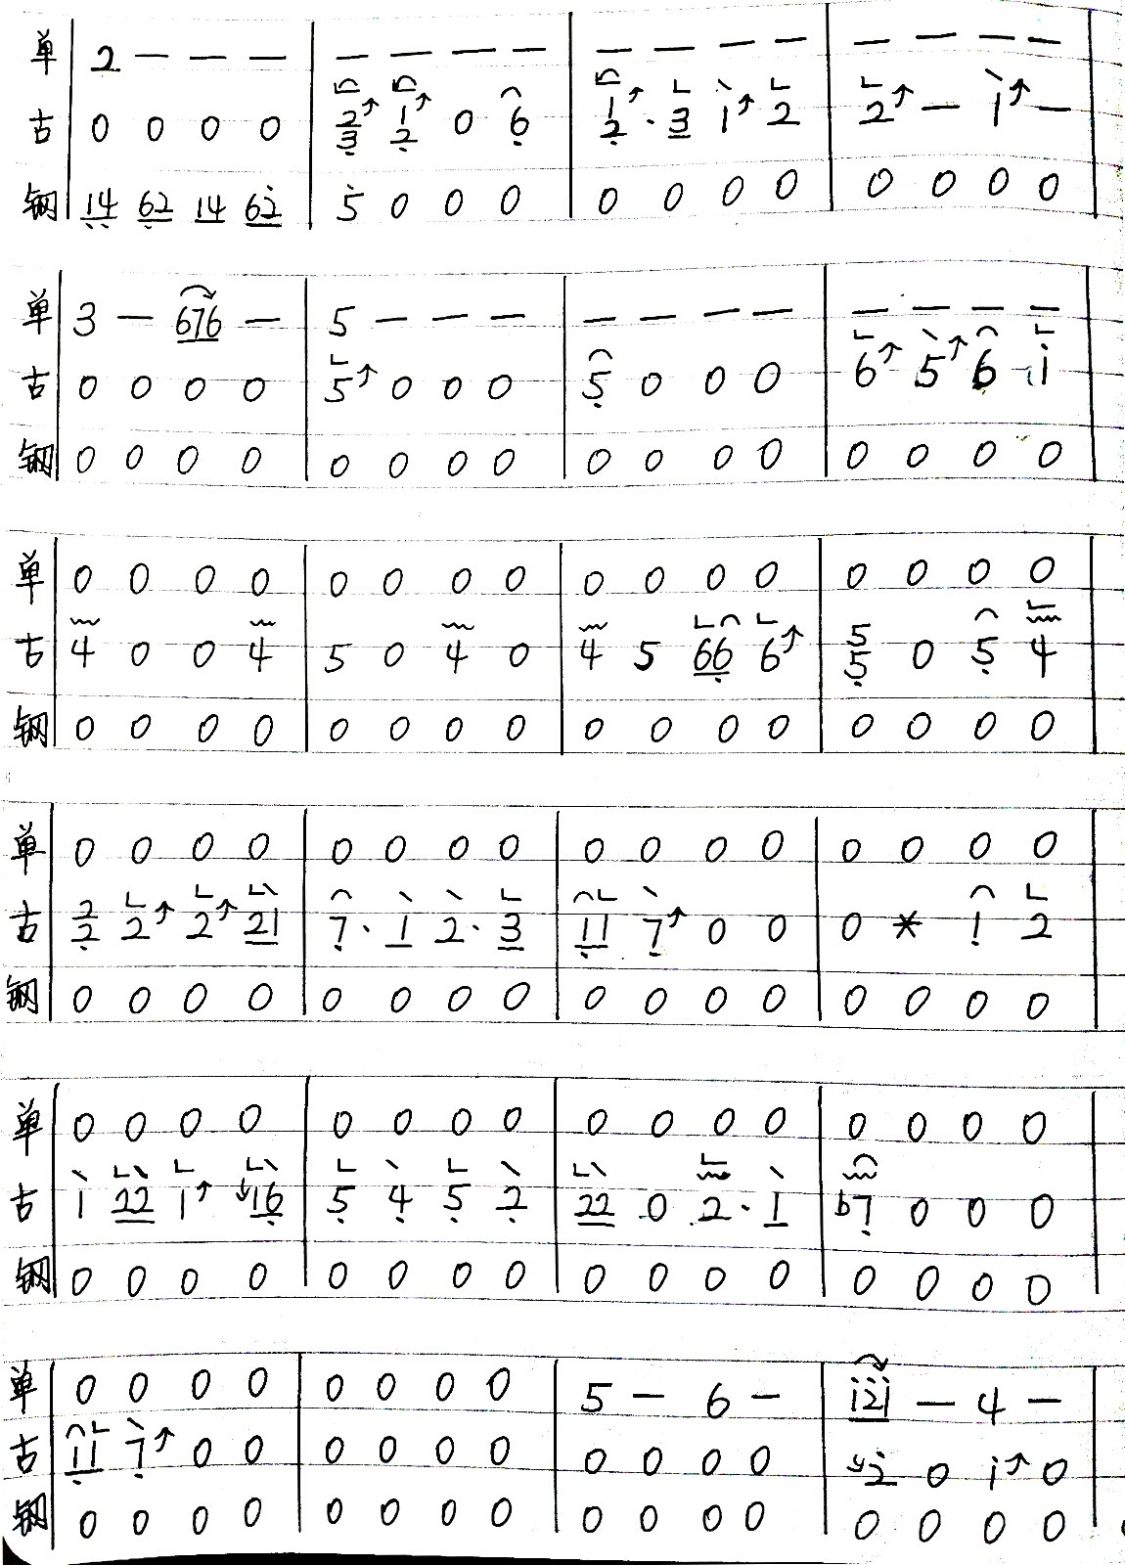 单 | 2 — — — | — — — — | — — — — | — — — — |
古 | 0 0 0 0 | 2/3̣↑ 1/2̣↑ 0 6̣ | 1/2̣↑ · 3̲ 1↑ 2 | 2↑ — 1↑ — |
钢 | 1̣4̣ 6̣2 14 62̇ | 5̇ 0 0 0 | 0 0 0 0 | 0 0 0 0 |
单 | 3 — 676 — | 5 — — — | — — — — | — — — — |
古 | 0 0 0 0 | 5↑ 0 0 0 | 5̣ 0 0 0 | 6↑ 5↑ 6 i |
钢 | 0 0 0 0 | 0 0 0 0 | 0 0 0 0 | 0 0 0 0 |
单 | 0 0 0 0 | 0 0 0 0 | 0 0 0 0 | 0 0 0 0 |
古 | 4 0 0 4 | 5 0 4 0 | 4 5 66̣ 6↑ | 5/5̣ 0 5̣ 4 |
钢 | 0 0 0 0 | 0 0 0 0 | 0 0 0 0 | 0 0 0 0 |
单 | 0 0 0 0 | 0 0 0 0 | 0 0 0 0 | 0 0 0 0 |
古 | 2/2̣ 2↑ 2↑ 21 | 7̣· 1̲ 2· 3̲ | 1̣1 7̣↑ 0 0 | 0 * 1̣ 2 |
钢 | 0 0 0 0 | 0 0 0 0 | 0 0 0 0 | 0 0 0 0 |
单 | 0 0 0 0 | 0 0 0 0 | 0 0 0 0 | 0 0 0 0 |
古 | 1 22 1↑ ↓16̣ | 5̣ 4̣ 5̣ 2̣ | 22 0 2· 1̲ | b7̣ 0 0 0 |
钢 | 0 0 0 0 | 0 0 0 0 | 0 0 0 0 | 0 0 0 0 |
单 | 0 0 0 0 | 0 0 0 0 | 5 — 6 — | i2̇i — 4 — |
古 | 1̣1 7̣↑ 0 0 | 0 0 0 0 | 0 0 0 0 | ↓2̇ 0 i↑ 0 |
钢 | 0 0 0 0 | 0 0 0 0 | 0 0 0 0 | 0 0 0 0 |